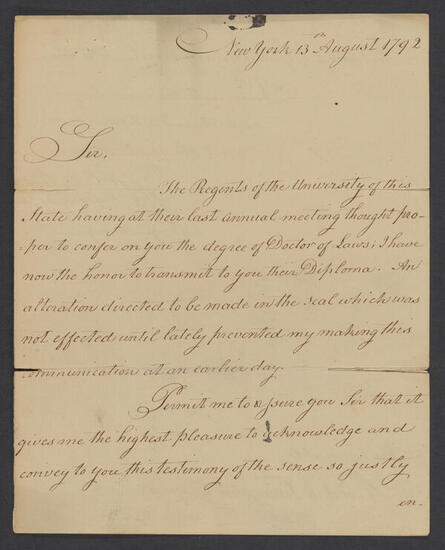 New York 13th August 1792
Sir,
The Regents of the University of this
State having at their last annual meeting thought pro-
-per to confer on you the degree of Doctor of Laws; I have
now the honor to transmit to you their Diploma. An
alteration directed to be made in the seal which was
not effected until lately prevented my making this
communication at an earlier day.
Permit me to assure you Sir that it
gives me the highest pleasure to acknowledge and
convey to you this testimony of the sense so justly
en-